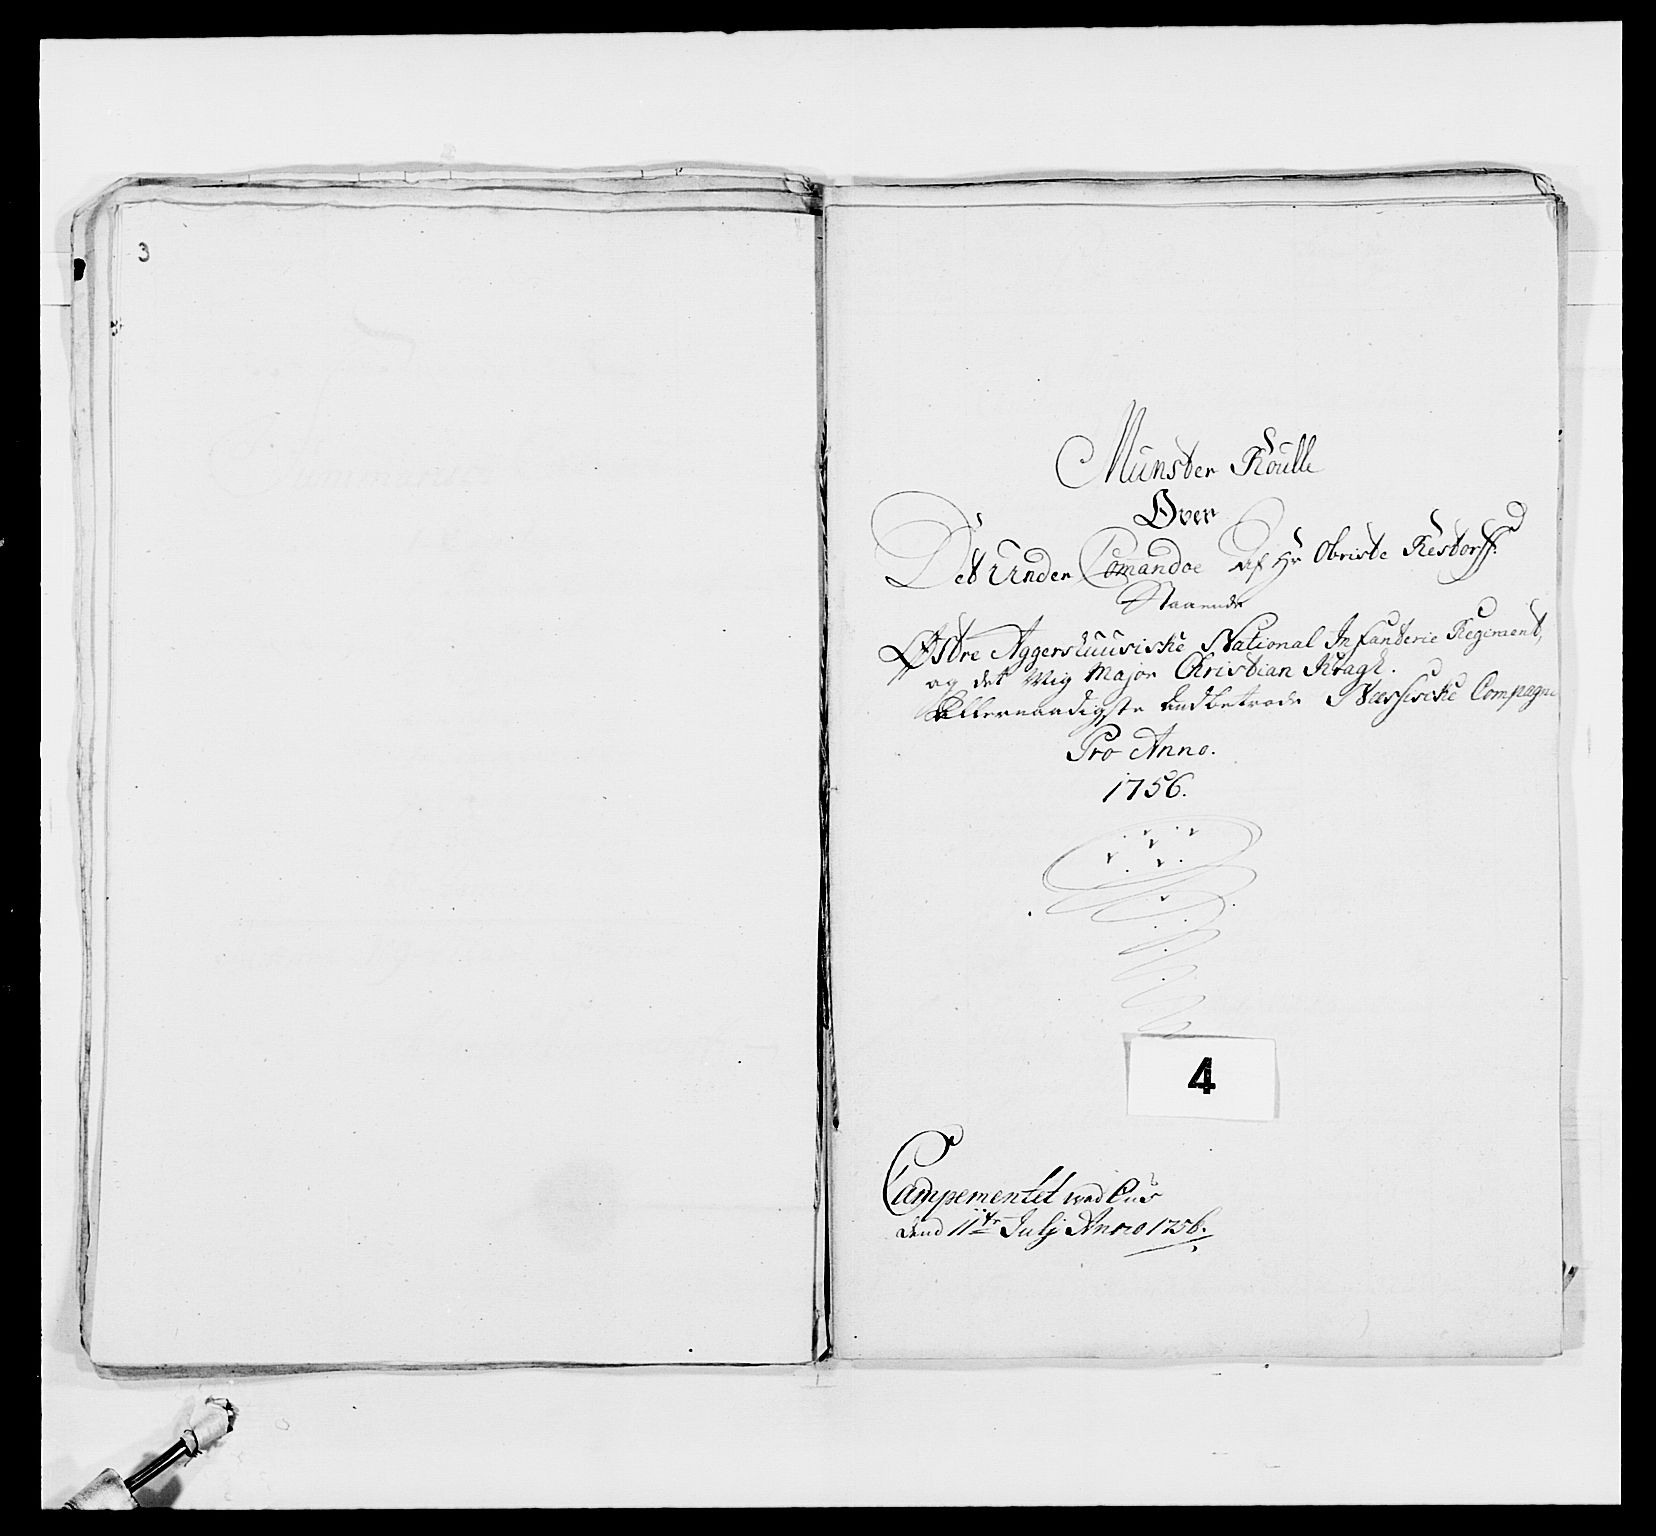 3
Munster Roulle
Over
Det Under Comandoe af Hr Obriste Restorff
Staaende
Østre Aggershuusiske National Infanterie Regiment,
og det Mig Major Christian Kragh.
Allernaadigste andbetrode Næssiske Compagni
Pro Anno.
1756.
4
Campementet ved
dend 11te Julj Anno 1756.